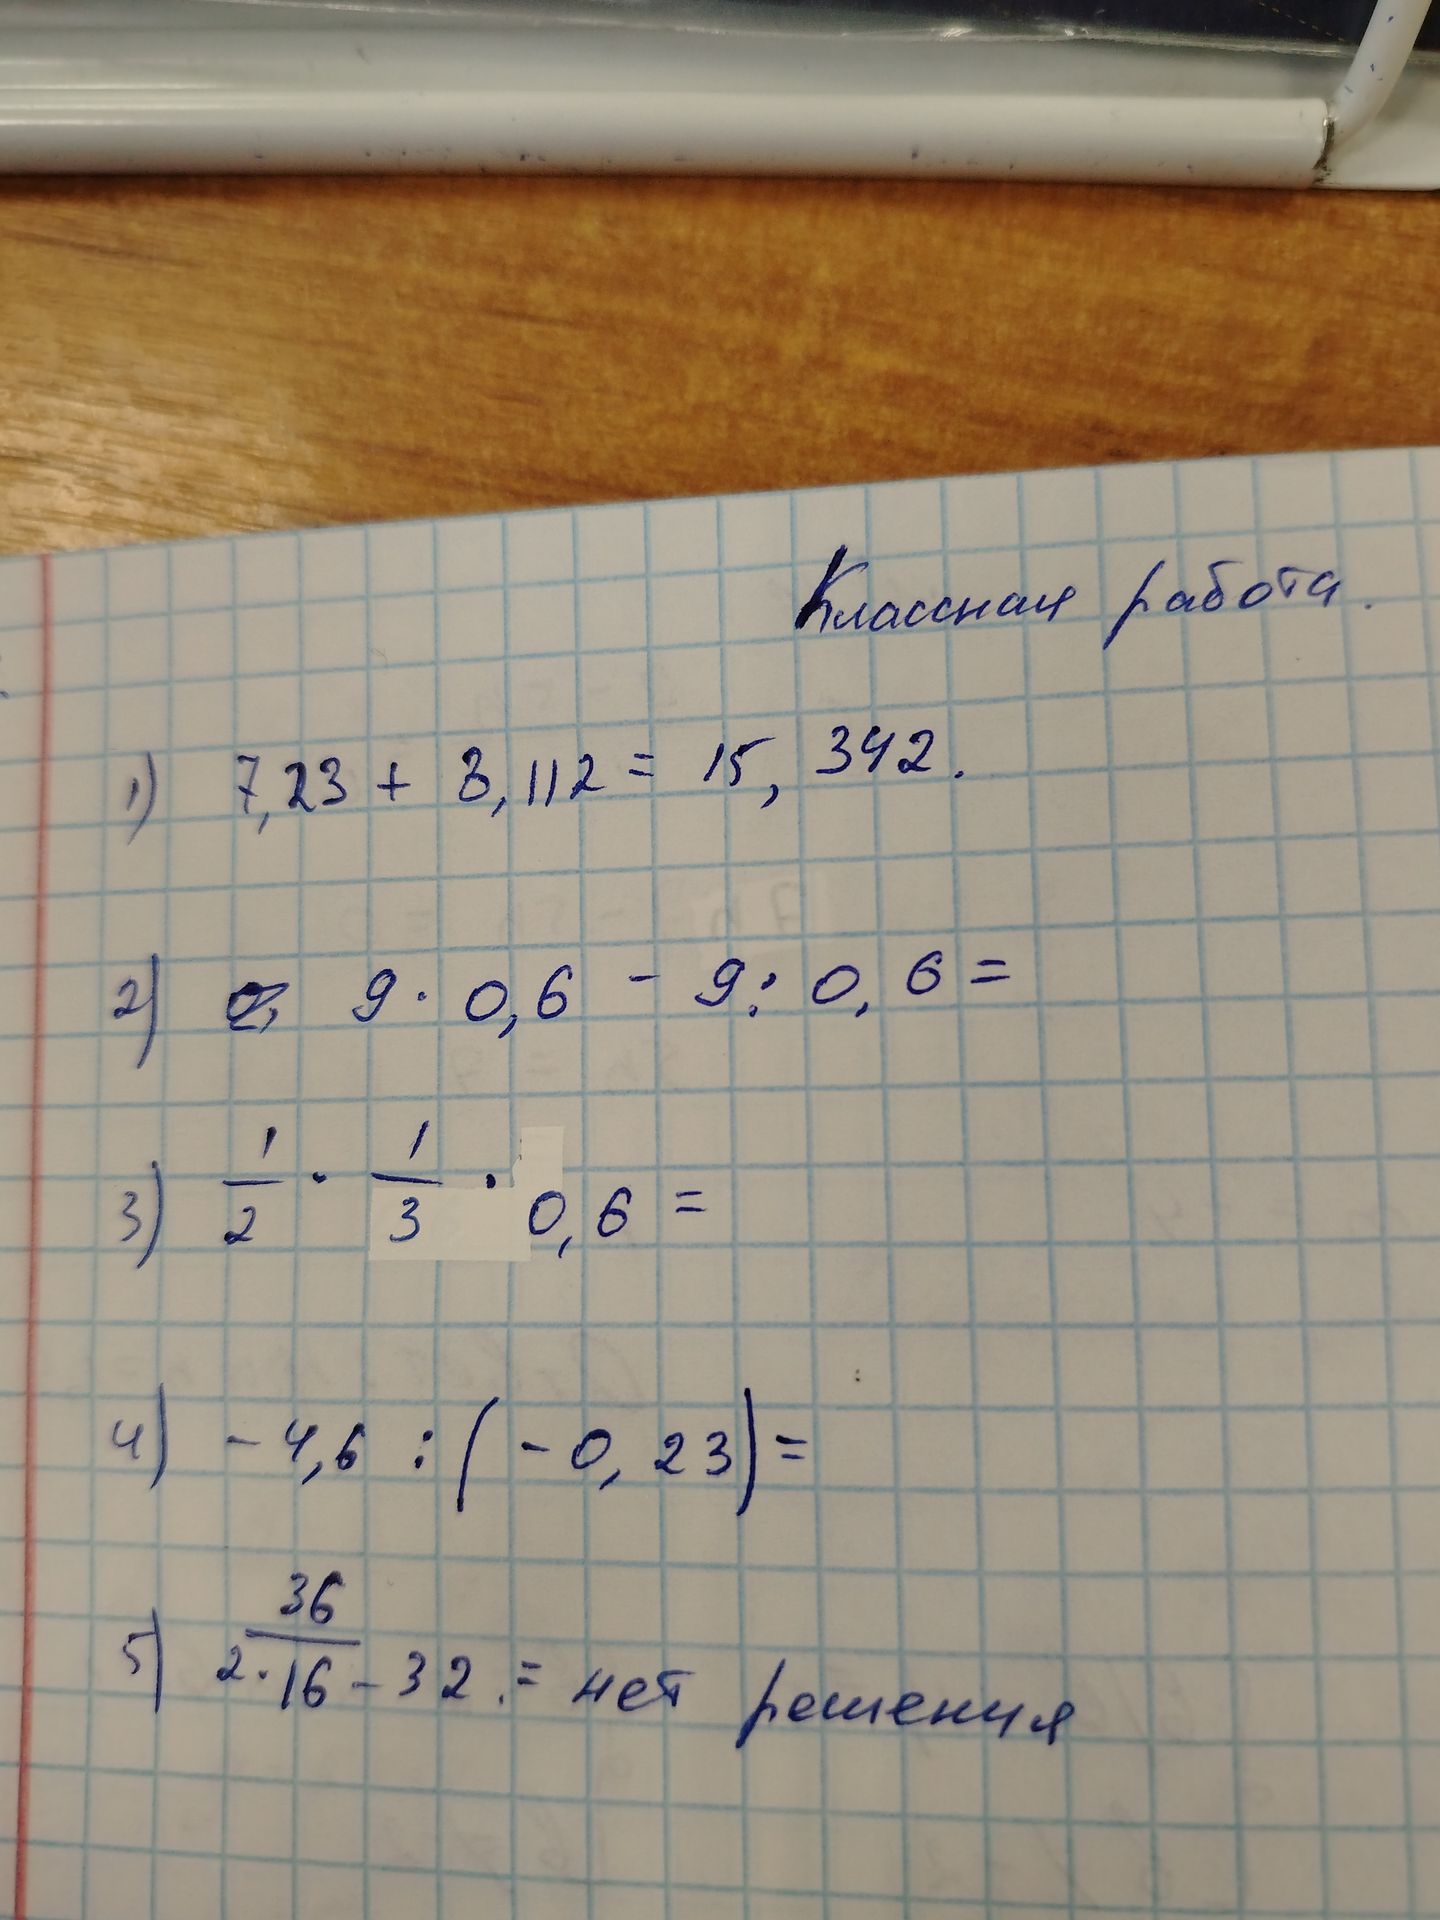 Классная работа.
1) 7,23 + 8,112 = 15,342.
2) 9 · 0,6 - 9 : 0,6 =
3) 1/2 · 1/3 · 0,6 =
4) -4,6 : (-0,23) =
5) 36/2·16-32. = нет решения